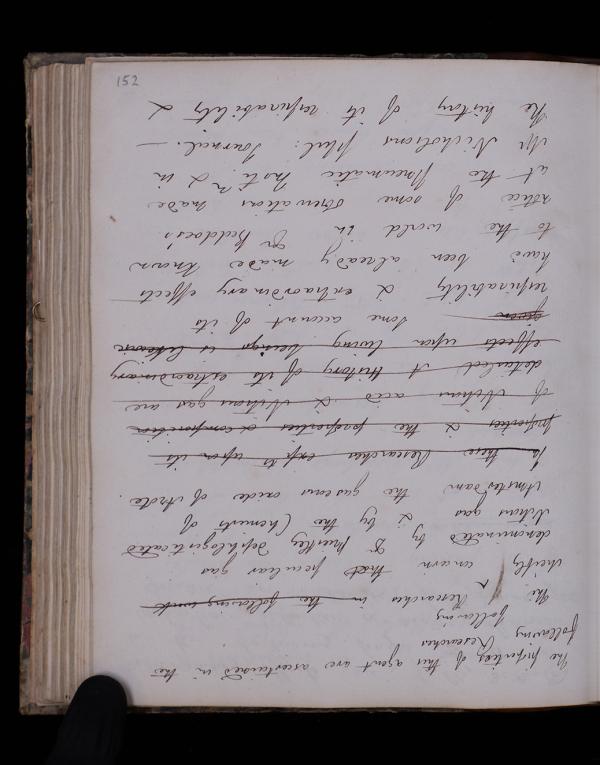 152
The properties of this agent are ascertained in the
following Researches
following
The Researches in the following work
chiefly concern that peculiar gas
denominated by Dr Priestley dephlogisticated
Nitrous gas & by the Chemists of
Amsterdam the gaseous oxide of Azote.
In these Researches expts upon its
properties & the properties & composition
of Nitrous acid & Nitrous gas are
detailed A History of its extraordinary
effects upon living beings is likewise
given some account of its
respirability & extraordinary effects
have been already made known
to the world in Dr Beddoes's
notice of some observations made
at the Pneumatic Instn & in
Mr Nicholsons Phil: Journal. —
The history of its respirability &